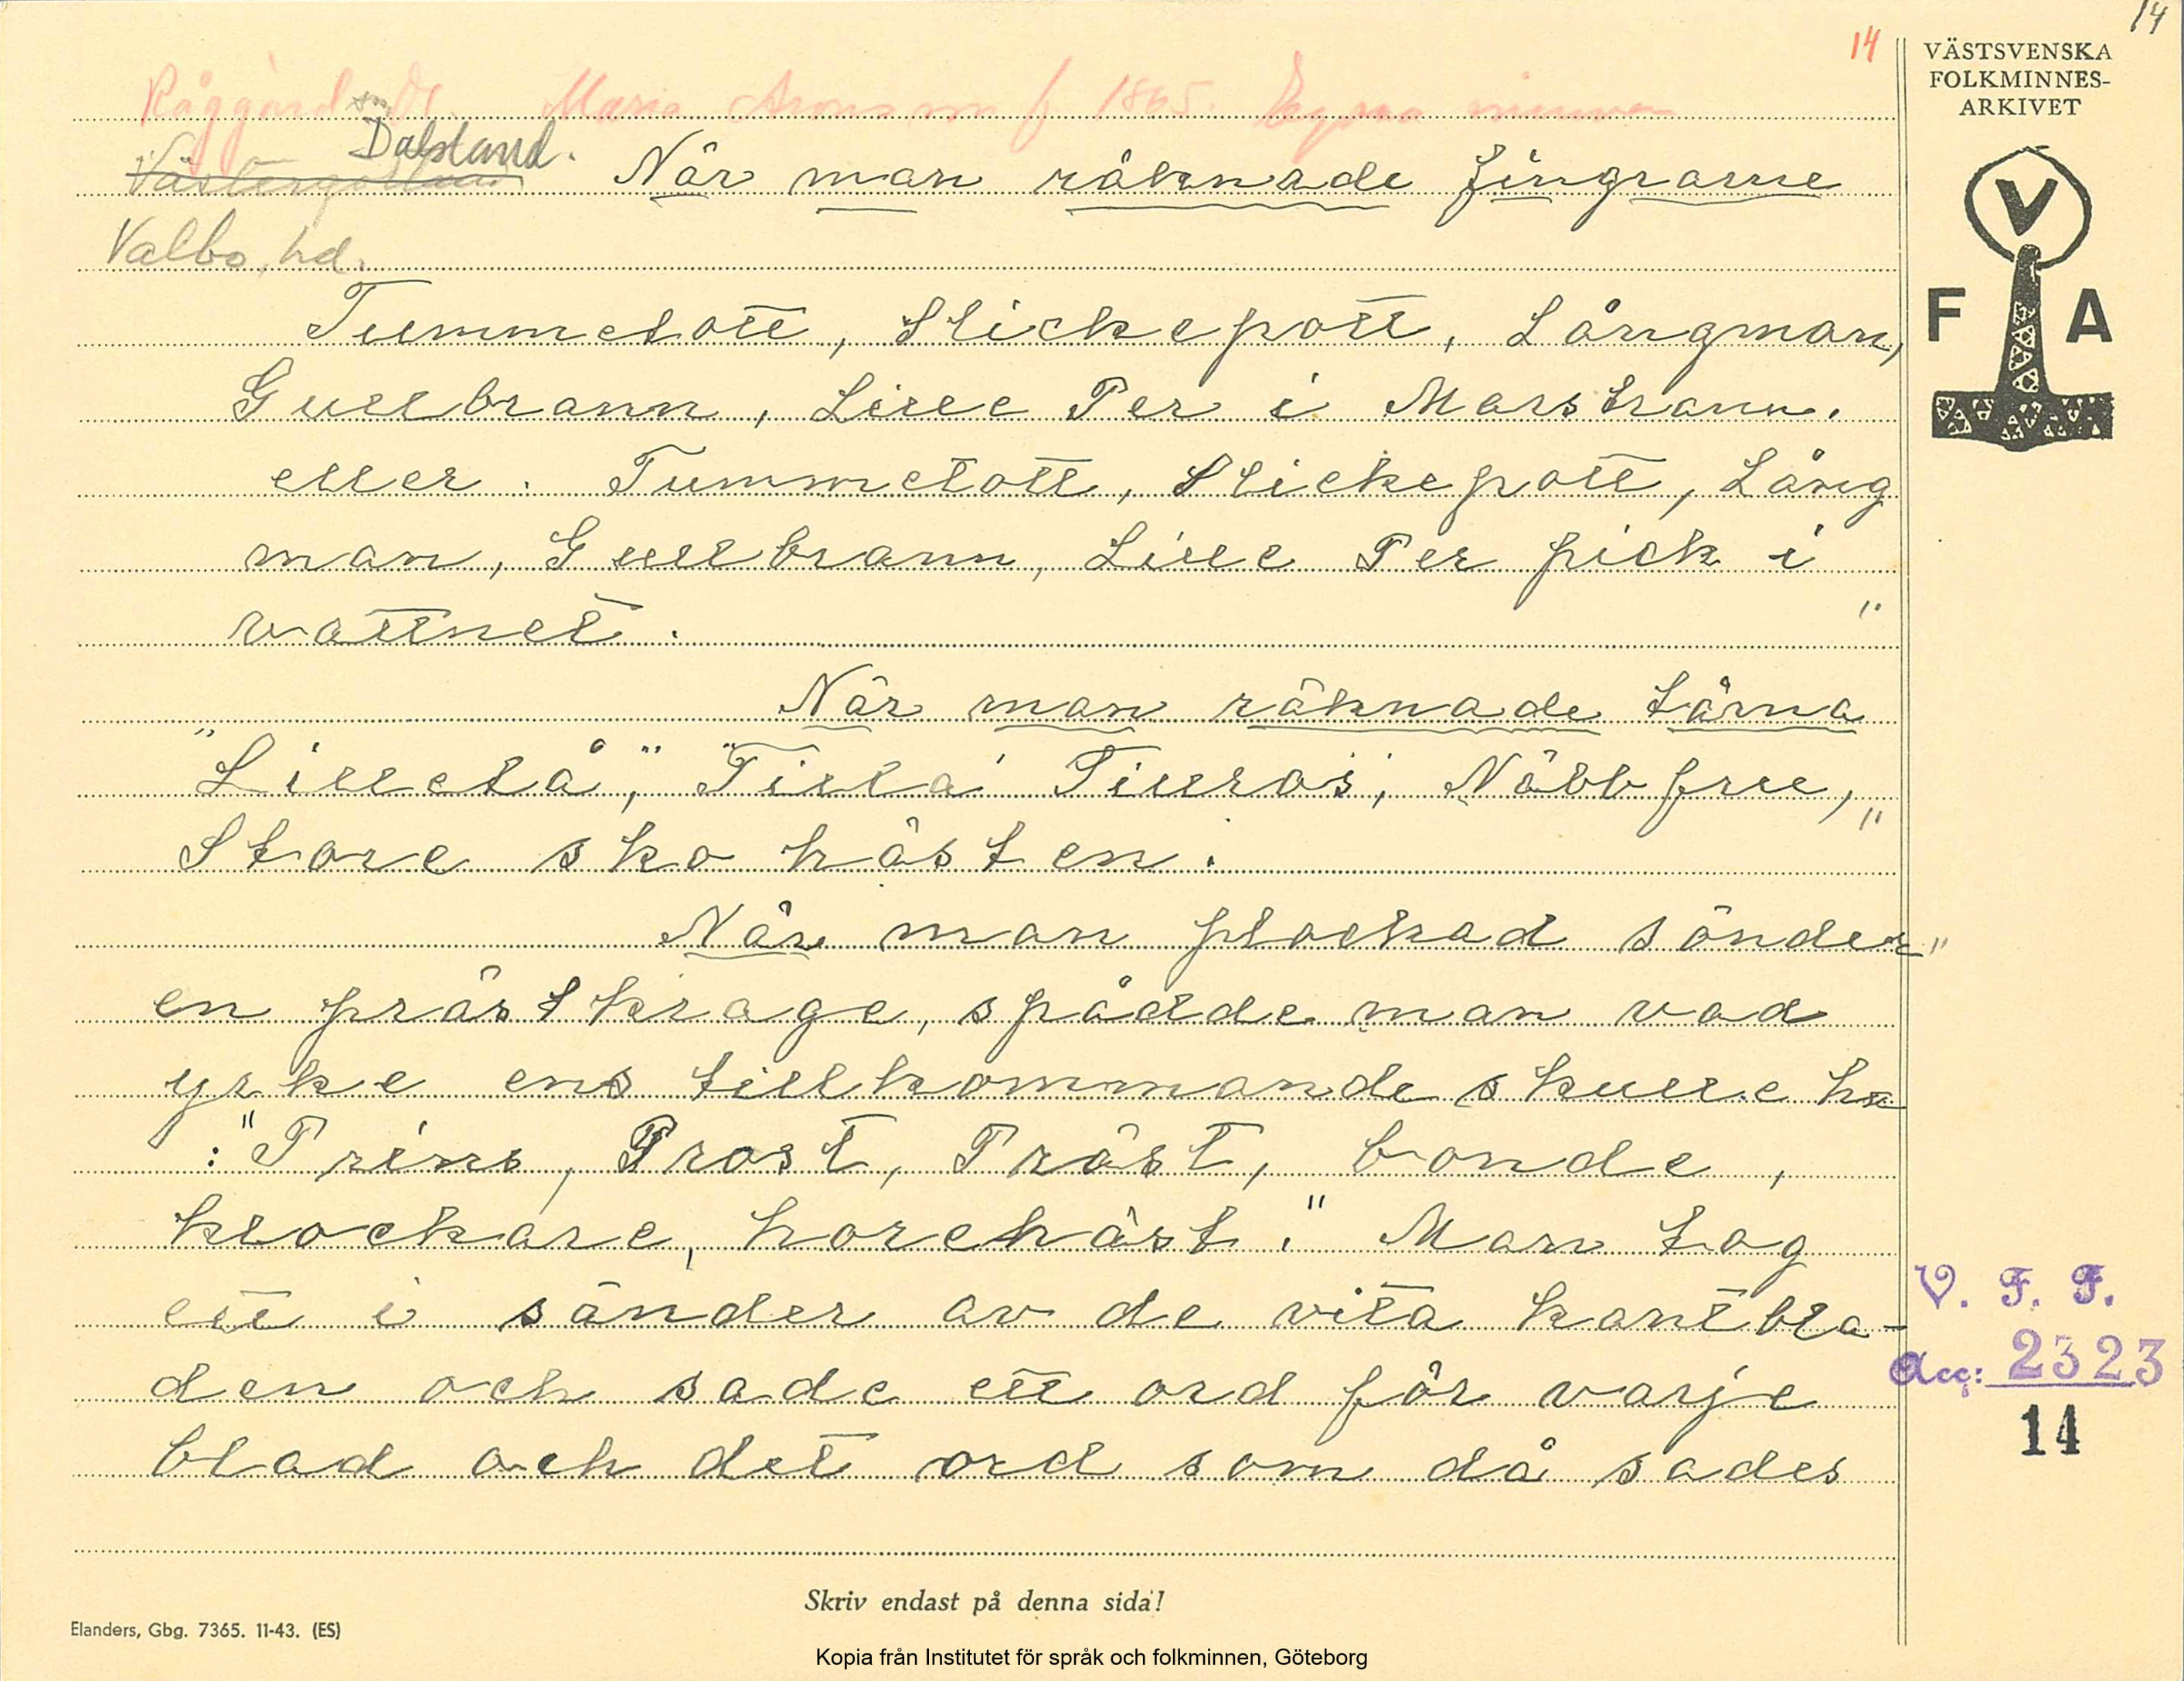 14
14
VÄSTSVENSKA
FOLKMINNES-
ARKIVET
Råggärd sn Dl. Maria Aronsson f 1865. Egna minnen
Västergötland Dalsland. När man räknade fingrarne
Valbo hd.
V
F A
Tummetott, Slickepott, Långman,
Gullbrann, Lille Per i Marstrann.
eller. Tummetott, Slickepott, Lång
man, Gullbrann, Lille Per pick i
vattnet. "
När man räknade tårna
"Lilletå", "Tilla" Tillros", Näbbfru,
Store sko hästen. "
När man plockad sönder "
en prästkrage, spådde man vad
yrke ens tillkommande skulle ha
: "Prins, Prost, Präst, bonde,
klockare, horehäst." Man tog
ett i sänder av de vita kantbla-
den och sade ett ord för varje
blad och det ord som då sades
V. F. F.
Acc: 2323
14
Skriv endast på denna sida!
Elanders, Gbg. 7365. 11-43. (ES)
Kopia från Institutet för språk och folkminnen, Göteborg